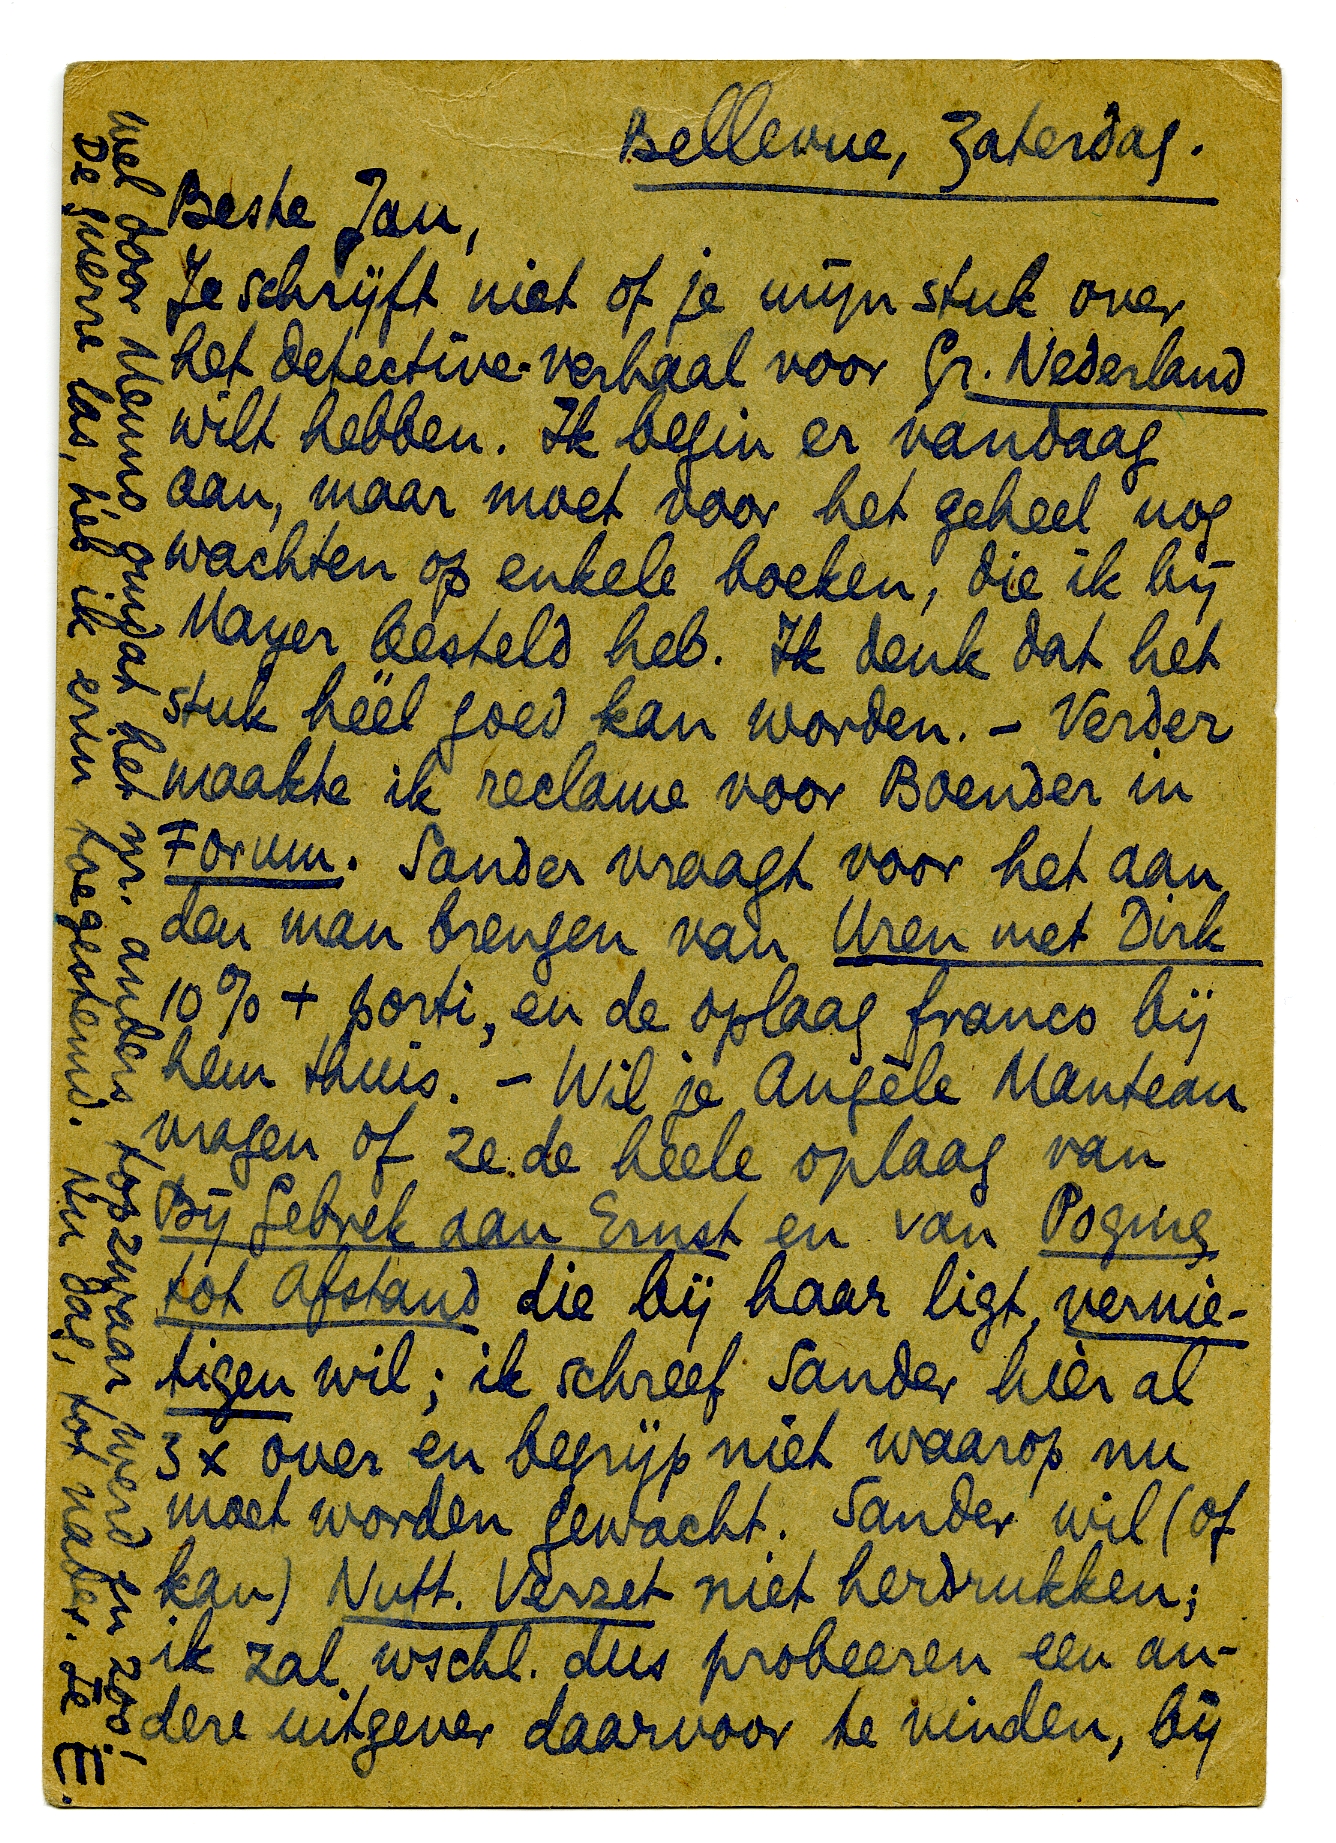 Bellevue, Zaterdag.
Beste Jan,
Je schrijft niet of je mijn stuk over
het detective-verhaal voor Gr. Nederland
wilt hebben. Ik begin er vandaag
aan, maar moet voor het geheel nog
wachten op enkele boeken, die ik bij
Mayer besteld heb. Ik denk dat het
stuk héél goed kan worden. – Verder
maakte ik reclame voor Boender in
Forum. Sander vraagt voor het aan
den man brengen van Uren met Dirk
10% + porti, en de oplaag franco bij
hem thuis. – Wil je Angèle Manteau
vragen of ze de heele oplaag van
Bij Gebrek aan Ernst en van Poging
tot Afstand die bij haar ligt, vernie-
tigen wil; ik schreef Sander hier al
3 x over en begrijp niet waarop nu
moet worden gewacht. Sander wil (of
kan) Nutt. Verzet niet herdrukken;
ik zal wschl. dus probeeren een an-
dere uitgever daarvoor te vinden, bij
De guerre las, heb ik erin toegestemd. Nu dag, tot nader. Je E.
wel door Menno omdat het nr. anders topzwaar werd en zoo!